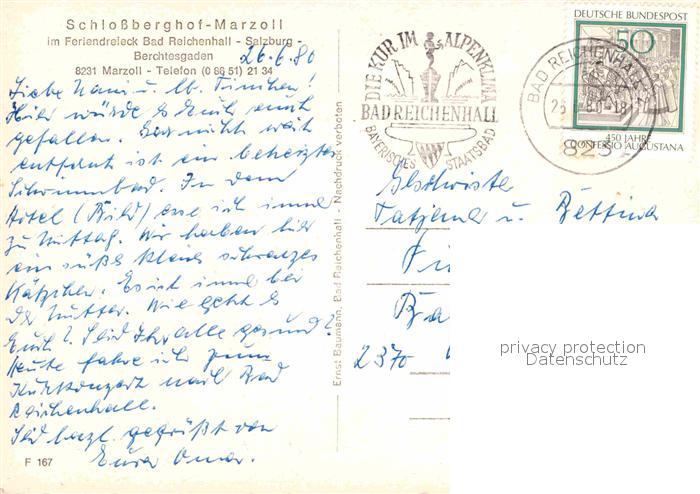 Schloßberghof-Marzoll
im Feriendreieck Bad Reichenhall - Salzburg -
Berchtesgaden
8231 Marzoll - Telefon (0 86 51) 21 34
26.6.80
Liebe Nani u. lb. Tinchen!
Hier würde es Euch auch
gefallen. Gar nicht weit
entfernt ist ein beheiztes
Schwimmbad. In dem
Hotel (Bild) esse ich immer
zu Mittag. Wir haben hier
ein süßes kleines schwarzes
Kätzchen. Es ist immer bei
der Mutter. Wie geht es
Euch? Seid Ihr alle gesund?
Heute fahre ich zum
Kurkonzert nach Bad
Reichenhall.
Seid herzl. gegrüßt von
Eurer Omar.
F 167
Ernst Baumann, Bad Reichenhall - Nachdruck verboten
DIE KUR IM ALPENKLIMA
BAD REICHENHALL
BAYERISCHES STAATSBAD
BAD REICHENHALL
823
DEUTSCHE BUNDESPOST
50
450 JAHRE
CONFESSIO AUGUSTANA
Geschwister
Tatjana u. Bettina
2370
privacy protection
Datenschutz